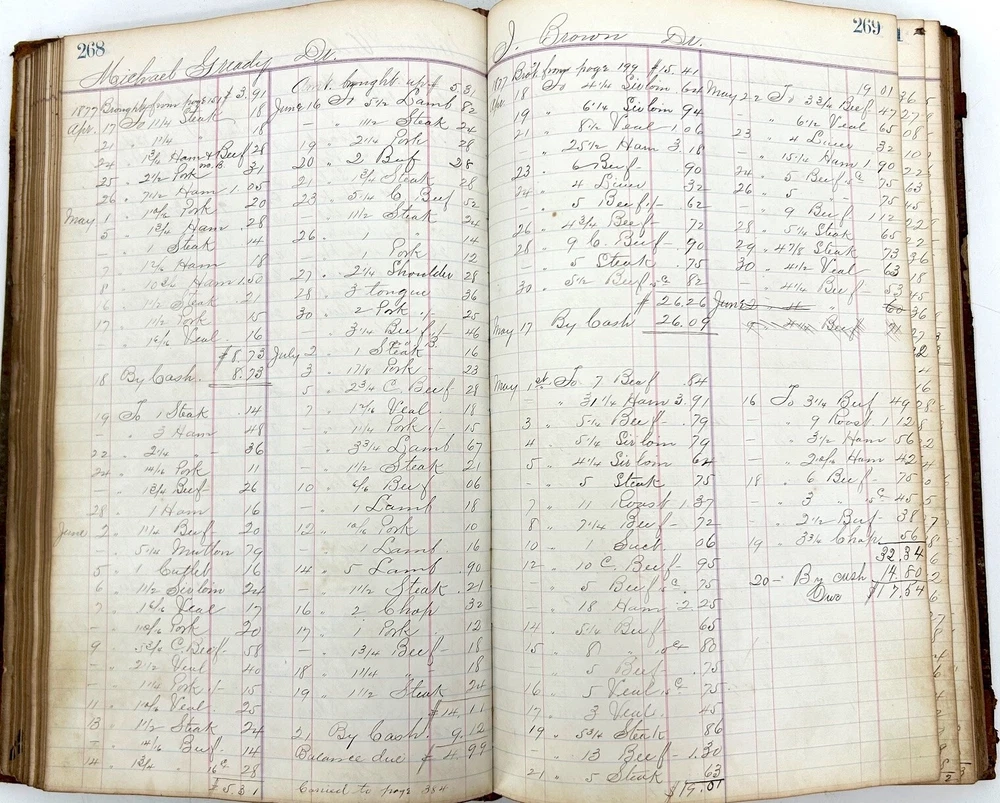 268
Michael Gready Dr.
1877 Brought from page 151 $3.91
Apr. 17 To 1 1/4 Steak 18
21 " 1 1/4 " 18
24 " Ham & Beef 28
25 " 2 1/2 Pork 31
26 " 7 1/2 Ham 1 05
May 1 " Pork 20
5 " Ham 28
- " 1 Steak 14
7 " Ham 18
8 " Ham 1.50
6 " 1 1/2 Steak .21
17 " 1 1/2 Pork 15
- " Veal 16
$8.73
18 By Cash. 8.73
19 To 1 Steak .14
- " 3 Ham 48
22 " 2 1/4 " 36
24 " Pork 11
- " Beef 26
28 " 1 Ham 16
June 2 " 1 1/4 Beef 20
- " 5 1/4 Mutton 79
5 " 1 Cutlet 16
6 " 1 1/2 Sirloin 24
7 " Veal 17
- " Pork 20
9 " C. Beef 58
- " 2 1/2 Veal 40
- " 1 1/4 Pork 15
11 " Veal 25
13 " 1 1/2 Steak 24
- " Beef 14
14 " 1 3/4 " 16c 28
$5.31
Amt. brought up $ 5.31
June 16 To 5 1/2 Lamb 82
- " 1 1/2 Steak 24
19 " 2 1/4 Pork 28
20 " 2 Beef 28
21 " 1 3/4 Steak 28
23 " 5 1/4 C. Beef 52
- " 1 1/2 Steak 24
26 " 1 " 14
- " 1 Pork 12
27 " 2 1/4 Shoulder 28
28 " 3 tongue 36
30 " 2 Pork 25
- " 3 1/4 Beef 46
July 2 " 1 Steak 16
3 " 1 7/8 Pork 23
5 " 2 3/4 C. Beef 28
7 " Veal 18
- " 1 1/4 Pork 15
- " 3 3/4 Lamb 67
- " 1 1/2 Steak 21
10 " Beef 06
- " 1 Lamb 18
12 " Pork 10
- " 1 Lamb 16
14 " 5 Lamb 90
- " 1 1/2 Steak .21
16 " 2 Chop 32
17 " 1 Pork 12
- " 1 3/4 Beef 18
18 " 1 1/4 " 18
19 " 1 1/2 Steak 24
$14.11
21 By Cash. 9.12
Balance due $4 99
Carried to page 384
269
J. Brown Dr.
1877 Brot. from page 199 $15.41
Apr. 18 To 4 1/4 Sirloin 64
19 " 6 1/4 Sirloin 94
- " 8 1/2 Veal 1 06
- " 25 1/2 Ham 3.18
23 " 6 Beef 90
24 " 4 Liver 32
- " 5 Beef 62
26 " 4 3/4 Beef 72
28 " 9 C. Beef 90
- " 5 Steak .75
30 " 5 1/2 Beef 82
$26.26
May 17 By Cash 26.09
May 1st. To 7 Beef .84
- " 31 1/4 Ham 3.91
3 " 5 1/4 Beef .79
4 " 5 1/4 Sirloin 79
5 " 4 1/4 Sirloin 64
- " 5 Steak 75
7 " 11 Roast 1.37
8 " 7 1/4 Beef 72
10 " 1 Suet 06
12 " 10 C. Beef 95
- " 5 Beef c .75
- " 18 Ham 2 25
14 " 5 1/4 Beef 65
15 " 8 " 10c 80
- " 5 Beef .75
16 " 5 Veal 15c 75
17 " 3 Veal 45
19 " 5 3/4 Steak 86
- " 13 Beef 1.30
21 " 5 Steak 63
$19.01
19 01
May 22 To 3 3/4 Beef 47
- " 6 1/2 Veal 65
23 " 4 Liver 32
- " 15 1/4 Ham 1 90
24 " 5 Beef 75
26 " 5 " 75
- " 9 Beef 1 12
28 " 5 1/4 Steak 65
29 " 4 7/8 Steak 73
30 " 4 1/2 Veal 63
- " 4 1/4 Beef 53
June 2 " 4 " 60
16 To 3 1/4 Beef 49
- " 9 Roast 1 12
- " 3 1/2 Ham 56
- " Ham 42
18 " 6 Beef 75
- " 3 " 45
- " 2 1/2 Beef 38
19 " 3 3/4 Chop 56
32.34
20 - By cash 14.80
Due $17.54